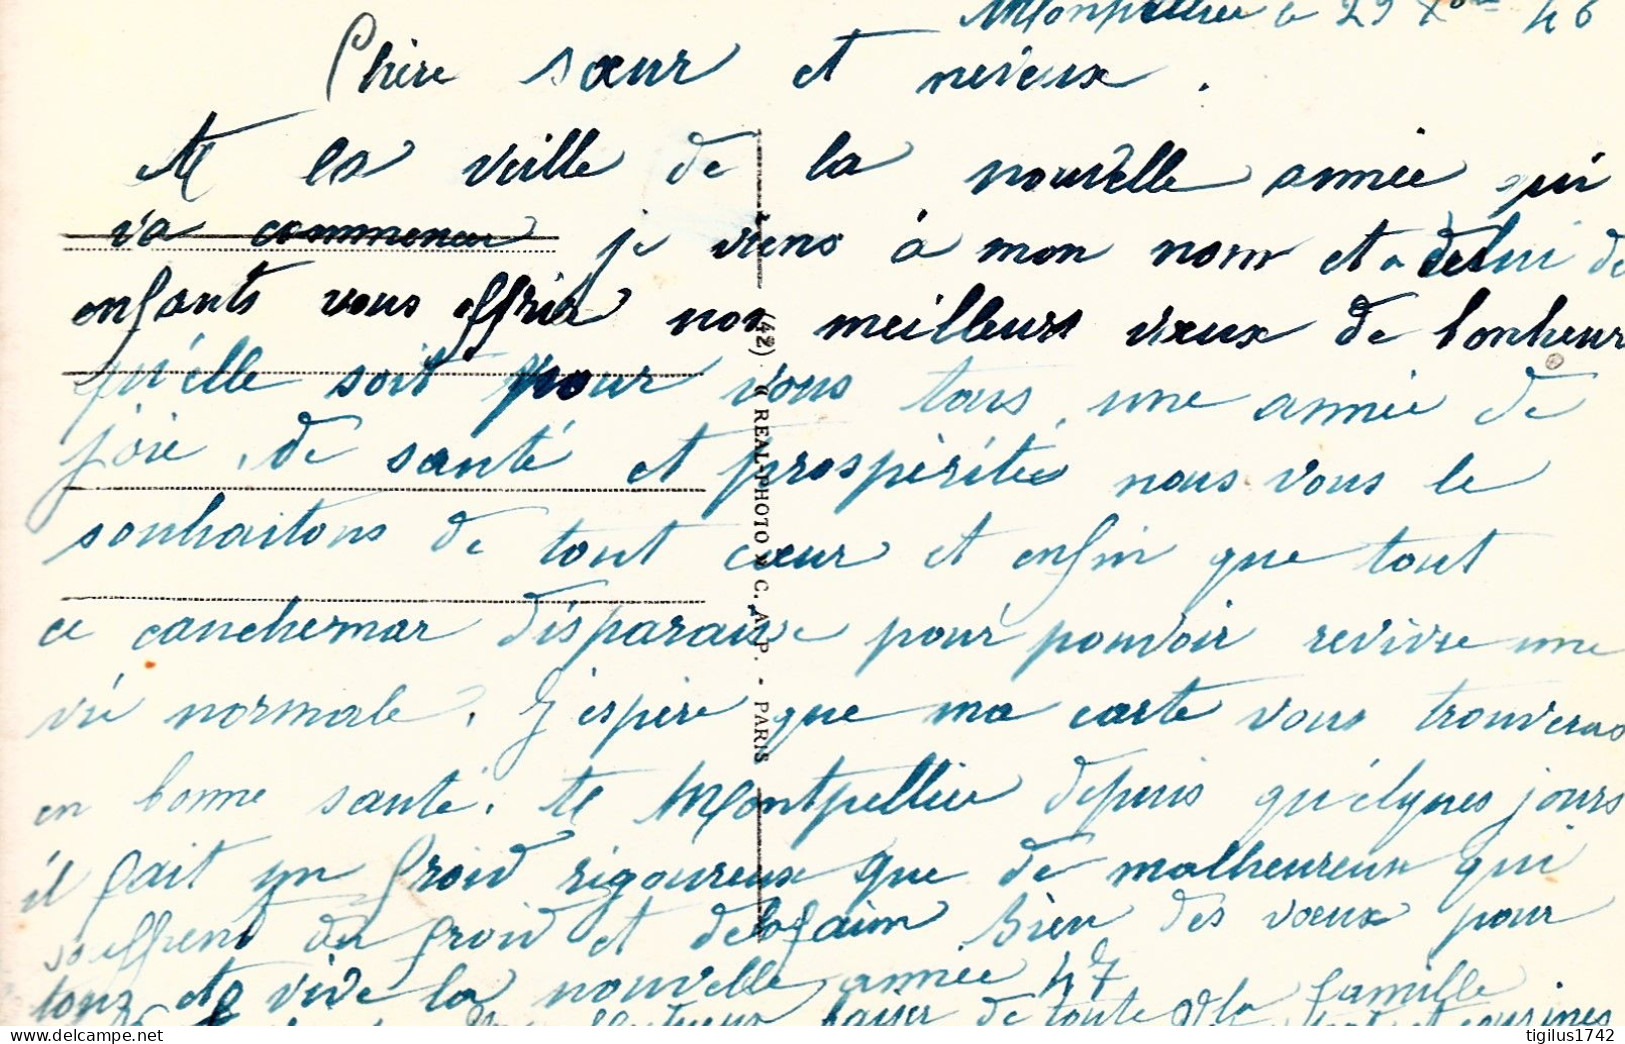 Montpellier le 29 Xbre 46
Chère sœur et neveux.
A la veille de la nouvelle année qui
va commencer je viens à mon nom et a celui de
enfants vous offrir nos meilleurs vœux de bonheur
qu'elle soit pour vous tous, une année de
joie, de santé et prospèritée nous vous le
souhaitons de tout cœur et enfin que tout
ce cauchemar disparaise pour pouvoir revivre une
vie normale. J'espère que ma carte vous trouveras
en bonne santé. A Montpellier depuis quélques jours
il fait un froid rigoureux que de malheureux qui
souffrent du froid et de la faim Bien des vœux pour
tous et vive la nouvelle année 47
baiser de toute la famille
et cousines
(42) « REAL-PHOTO » C. A. P. - PARIS
delcampe.net
tigilus1742